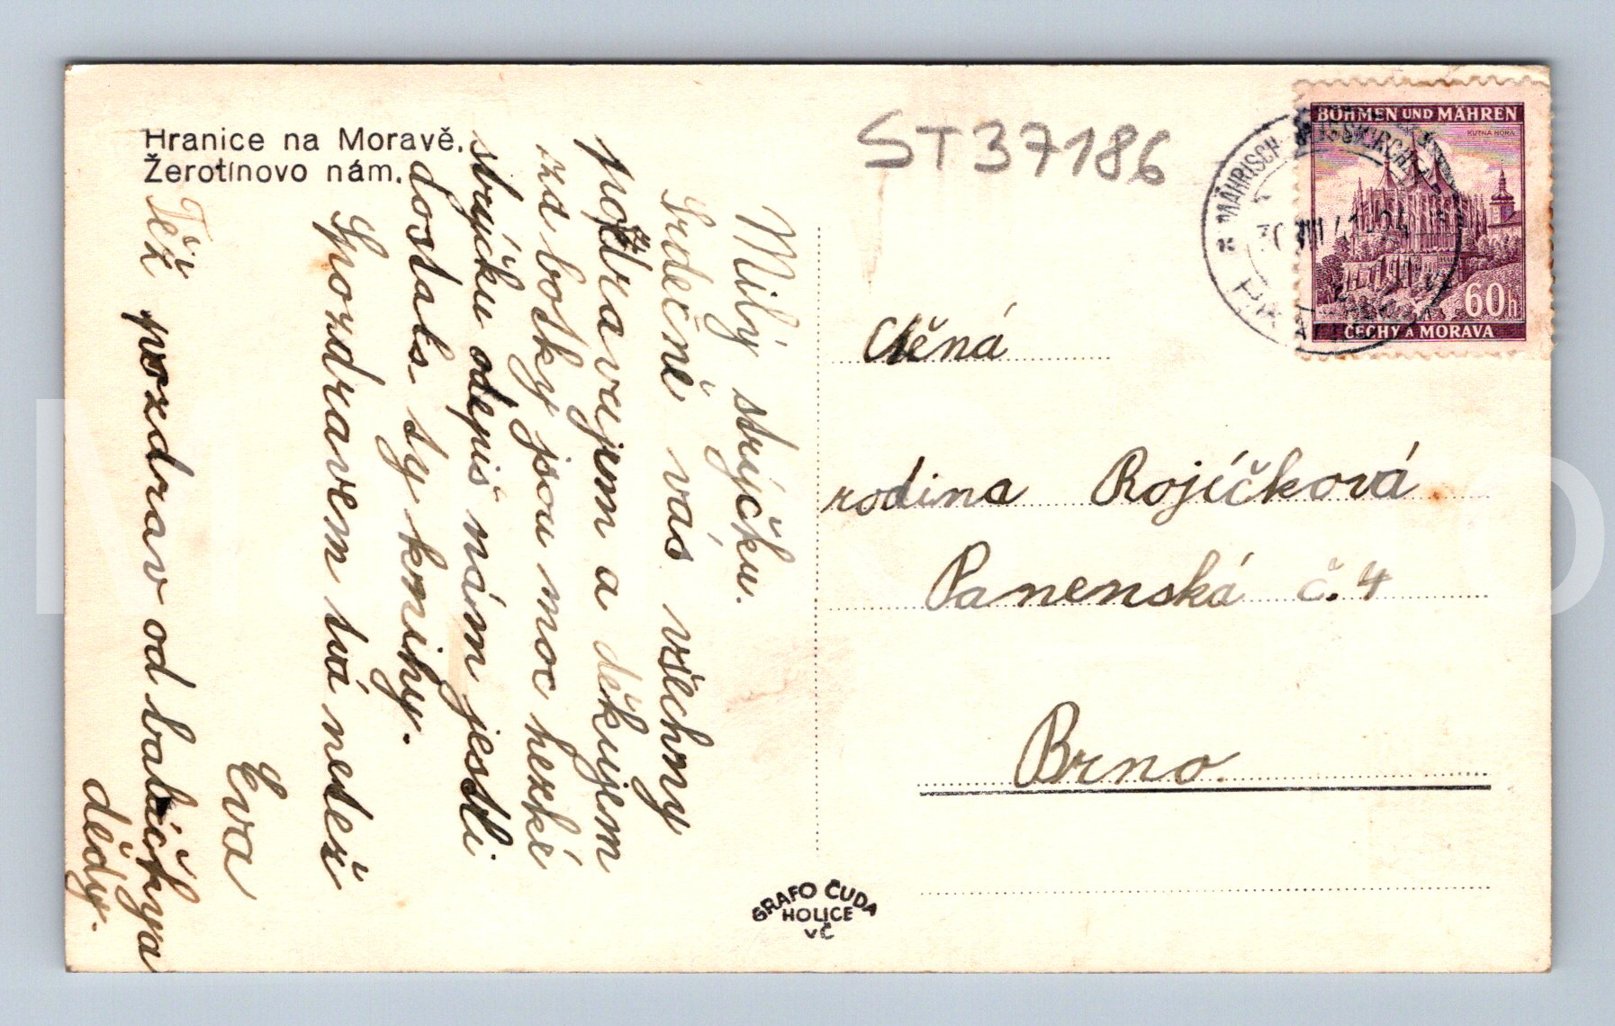 Hranice na Moravě.
Žerotínovo nám.
ST37186
BÖHMEN UND MÄHREN
KUTNÁ HORA
60h
ČECHY A MORAVA
MÄHRISCH WEISSKIRCHEN
Milý strýčku.
Srdečně vás všechny
pozdravujem a děkujem
za botky jsou moc hezké
strýčku odepiš nám jestli
dostals ty knihy.
S pozdravem tvá neteř
Eva
Též pozdrav od babičky a
dědy.
Ctěná
rodina Rojíčková
Panenská č. 4
Brno.
GRAFO ČUDA
HOLICE
VČ